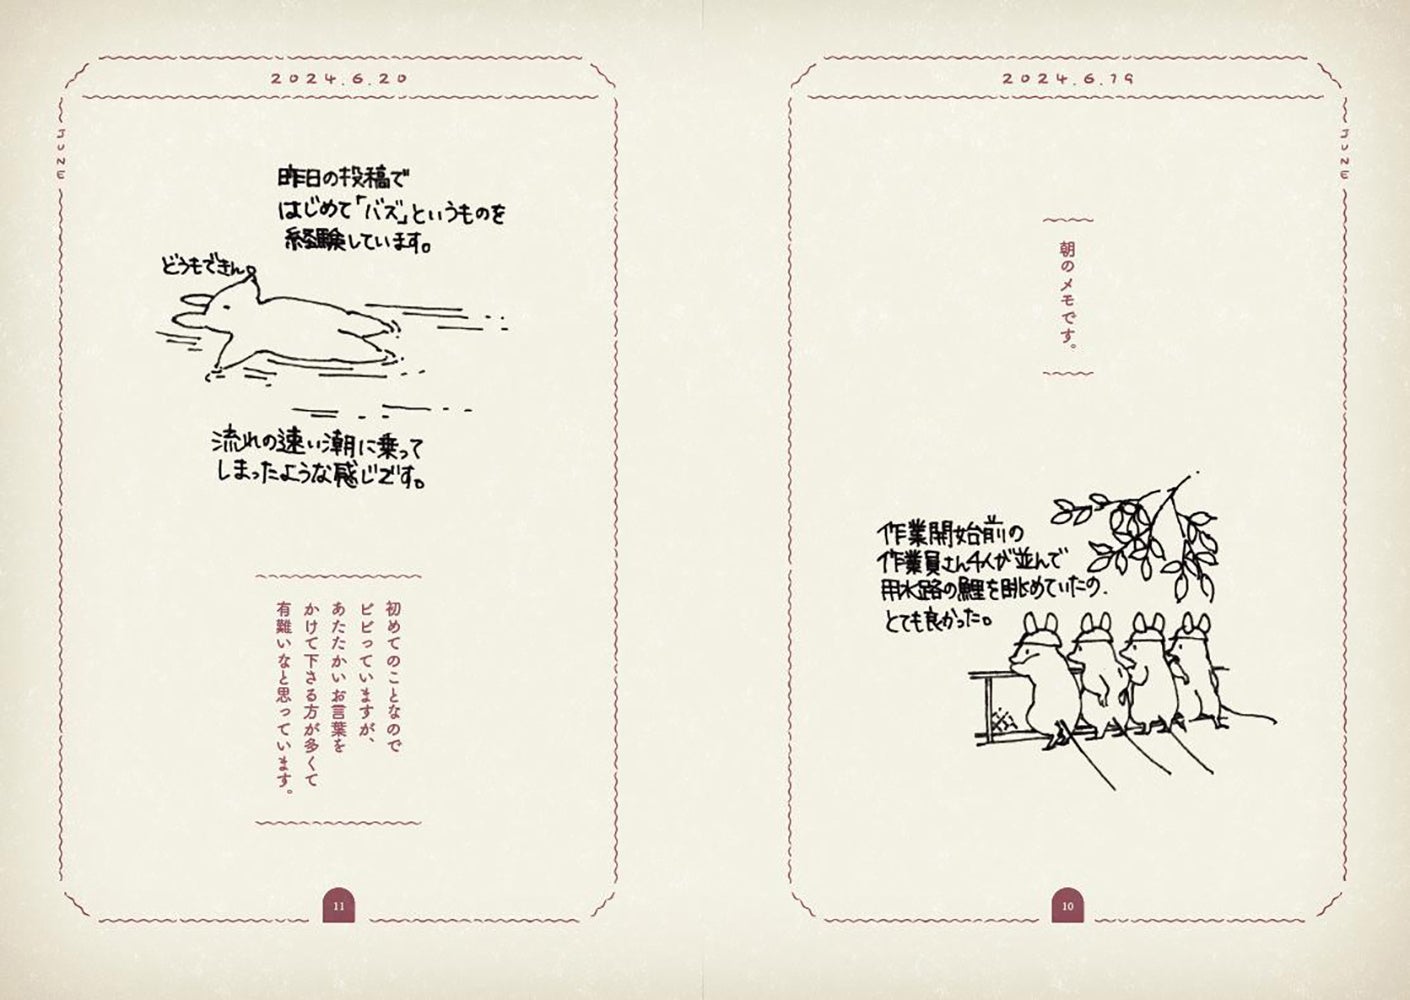 2024.6.19
JUNE
朝のメモです。
作業開始前の
作業員さん4人が並んで
用水路の鯉を眺めていたの.
とても良かった。
10
2024.6.20
JUNE
昨日の投稿で
はじめて「バズ」というものを
経験しています。
どうもできん。
流れの速い潮に乗って
しまったような感じです。
初めてのことなので
ビビっていますが、
あたたかいお言葉を
かけて下さる方が多くて
有難いなと思っています。
11